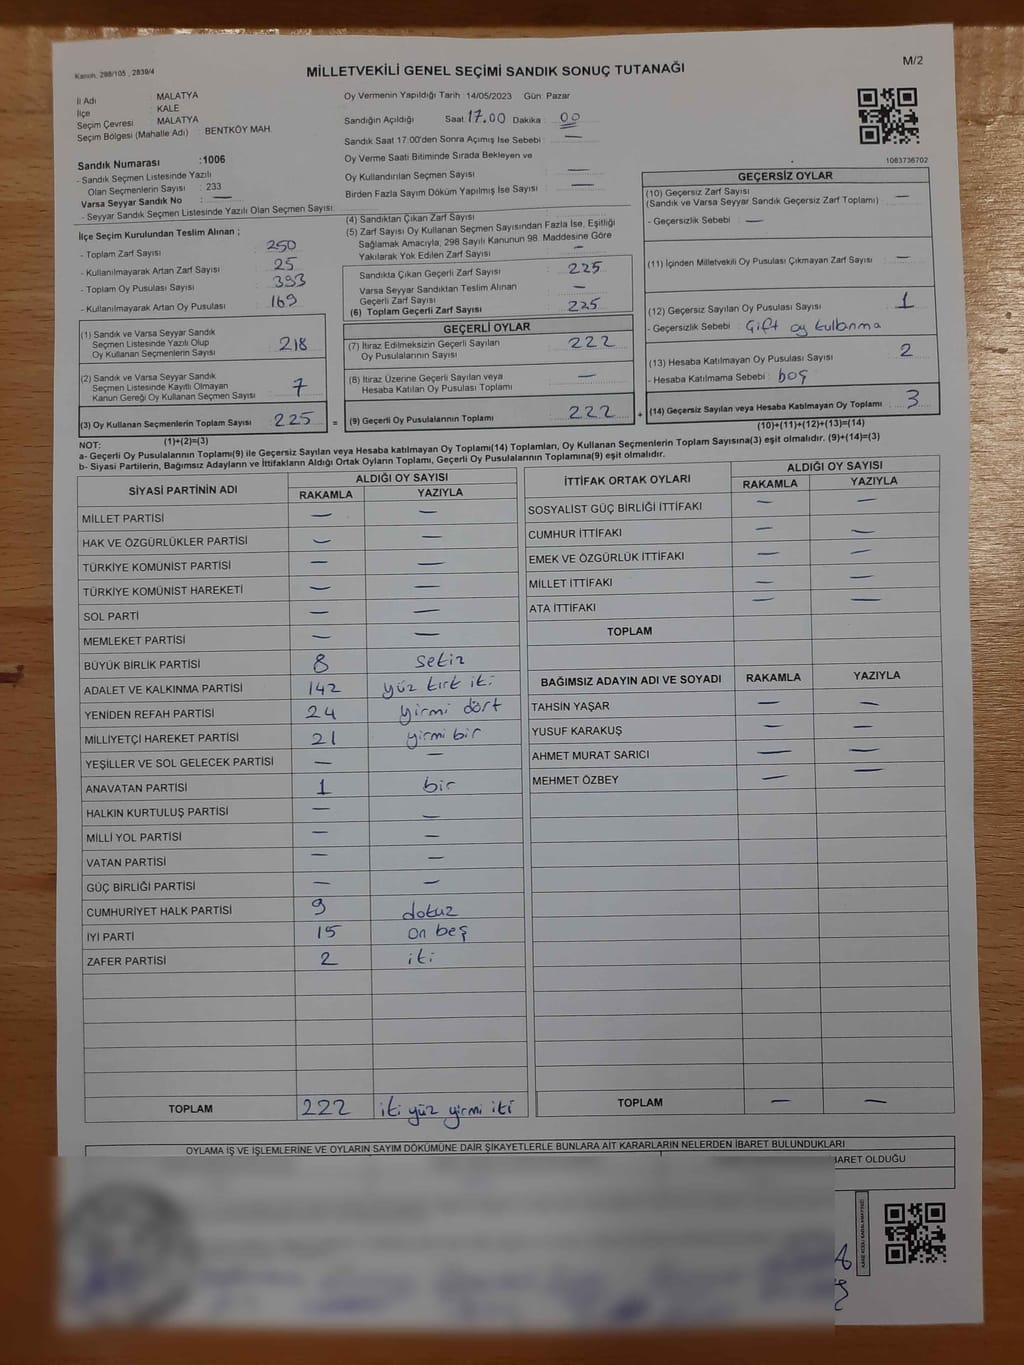 Kanun, 298/105 , 2839/4
MİLLETVEKİLİ GENEL SEÇİMİ SANDIK SONUÇ TUTANAĞI
M/2
İl Adı : MALATYA
İlçe : KALE
Seçim Çevresi : MALATYA
Seçim Bölgesi (Mahalle Adı) : BENTKÖY MAH.
Sandık Numarası :1006
- Sandık Seçmen Listesinde Yazılı
Olan Seçmenlerin Sayısı : 233
Varsa Seyyar Sandık No : —
- Seyyar Sandık Seçmen Listesinde Yazılı Olan Seçmen Sayısı:
Oy Vermenin Yapıldığı Tarih :14/05/2023 Gün: Pazar
Sandığın Açıldığı Saat 17.00 Dakika : 00
Sandık Saat 17.00'den Sonra Açımış İse Sebebi : —
Oy Verme Saati Bitiminde Sırada Bekleyen ve
Oy Kullandırılan Seçmen Sayısı : —
Birden Fazla Sayım Döküm Yapılmış İse Sayısı : —
1083736702
İlçe Seçim Kurulundan Teslim Alınan ;
- Toplam Zarf Sayısı : 250
- Kullanılmayarak Artan Zarf Sayısı : 25
- Toplam Oy Pusulası Sayısı : 393
- Kullanılmayarak Artan Oy Pusulası : 169
(1) Sandık ve Varsa Seyyar Sandık
Seçmen Listesinde Yazılı Olup
Oy Kullanan Seçmenlerin Sayısı : 218
(2) Sandık ve Varsa Seyyar Sandık
Seçmen Listesinde Kayıtlı Olmayan
Kanun Gereği Oy Kullanan Seçmen Sayısı : 7
(3) Oy Kullanan Seçmenlerin Toplam Sayısı : 225
(1)+(2)=(3)
(4) Sandıktan Çıkan Zarf Sayısı
(5) Zarf Sayısı Oy Kullanan Seçmen Sayısından Fazla İse, Eşitliği
Sağlamak Amacıyla, 298 Sayılı Kanunun 98. Maddesine Göre
Yakılarak Yok Edilen Zarf Sayısı : —
Sandıkta Çıkan Geçerli Zarf Sayısı : 225
Varsa Seyyar Sandıktan Teslim Alınan
Geçerli Zarf Sayısı : —
(6) Toplam Geçerli Zarf Sayısı : 225
GEÇERLİ OYLAR
(7) İtiraz Edilmeksizin Geçerli Sayılan
Oy Pusulalarının Sayısı : 222
(8) İtiraz Üzerine Geçerli Sayılan veya
Hesaba Katılan Oy Pusulası Toplamı : —
(9) Geçerli Oy Pusulalarının Toplamı : 222
GEÇERSİZ OYLAR
(10) Geçersiz Zarf Sayısı
(Sandık ve Varsa Seyyar Sandık Geçersiz Zarf Toplamı) : —
- Geçersizlik Sebebi : —
(11) İçinden Milletvekili Oy Pusulası Çıkmayan Zarf Sayısı : —
(12) Geçersiz Sayılan Oy Pusulası Sayısı : 1
- Geçersizlik Sebebi : Çift oy kullanma
(13) Hesaba Katılmayan Oy Pusulası Sayısı : 2
- Hesaba Katılmama Sebebi : boş
(14) Geçersiz Sayılan veya Hesaba Katılmayan Oy Toplamı : 3
(10)+(11)+(12)+(13)=(14)
NOT:
a- Geçerli Oy Pusulalarının Toplamı(9) ile Geçersiz Sayılan veya Hesaba katılmayan Oy Toplamı(14) Toplamları, Oy Kullanan Seçmenlerin Toplam Sayısına(3) eşit olmalıdır. (9)+(14)=(3)
b- Siyasi Partilerin, Bağımsız Adayların ve İttifakların Aldığı Ortak Oyların Toplamı, Geçerli Oy Pusulalarının Toplamına(9) eşit olmalıdır.
SİYASİ PARTİNİN ADI ALDIĞI OY SAYISI
RAKAMLA YAZIYLA
MİLLET PARTİSİ — —
HAK VE ÖZGÜRLÜKLER PARTİSİ — —
TÜRKİYE KOMÜNİST PARTİSİ — —
TÜRKİYE KOMÜNİST HAREKETİ — —
SOL PARTİ — —
MEMLEKET PARTİSİ — —
BÜYÜK BİRLİK PARTİSİ 8 sekiz
ADALET VE KALKINMA PARTİSİ 142 yüz kırk iki
YENİDEN REFAH PARTİSİ 24 yirmi dört
MİLLİYETÇİ HAREKET PARTİSİ 21 yirmi bir
YEŞİLLER VE SOL GELECEK PARTİSİ — —
ANAVATAN PARTİSİ 1 bir
HALKIN KURTULUŞ PARTİSİ — —
MİLLİ YOL PARTİSİ — —
VATAN PARTİSİ — —
GÜÇ BİRLİĞİ PARTİSİ — —
CUMHURİYET HALK PARTİSİ 9 dokuz
İYİ PARTİ 15 on beş
ZAFER PARTİSİ 2 iki
TOPLAM 222 iki yüz yirmi iki
İTTİFAK ORTAK OYLARI ALDIĞI OY SAYISI
RAKAMLA YAZIYLA
SOSYALİST GÜÇ BİRLİĞİ İTTİFAKI — —
CUMHUR İTTİFAKI — —
EMEK VE ÖZGÜRLÜK İTTİFAKI — —
MİLLET İTTİFAKI — —
ATA İTTİFAKI — —
TOPLAM
BAĞIMSIZ ADAYIN ADI VE SOYADI RAKAMLA YAZIYLA
TAHSİN YAŞAR — —
YUSUF KARAKUŞ — —
AHMET MURAT SARICI — —
MEHMET ÖZBEY — —
TOPLAM — —
OYLAMA İŞ VE İŞLEMLERİNE VE OYLARIN SAYIM DÖKÜMÜNE DAİR ŞİKAYETLERLE BUNLARA AİT KARARLARIN NELERDEN İBARET BULUNDUKLARI
BARET OLDUĞU